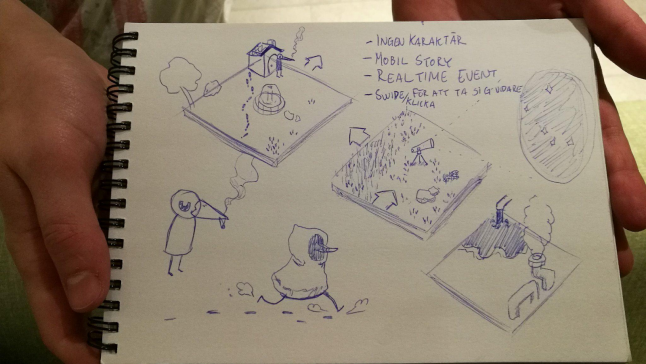 - INGEN KARAKTÄR
- MOBIL STORY
- REALTIME EVENT
- SWIPE/ FÖR ATT TA SIG VIDARE
KLICKA